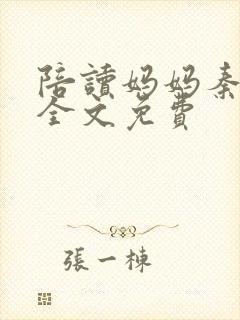 陪讀媽媽秦
全文免費
張一棟